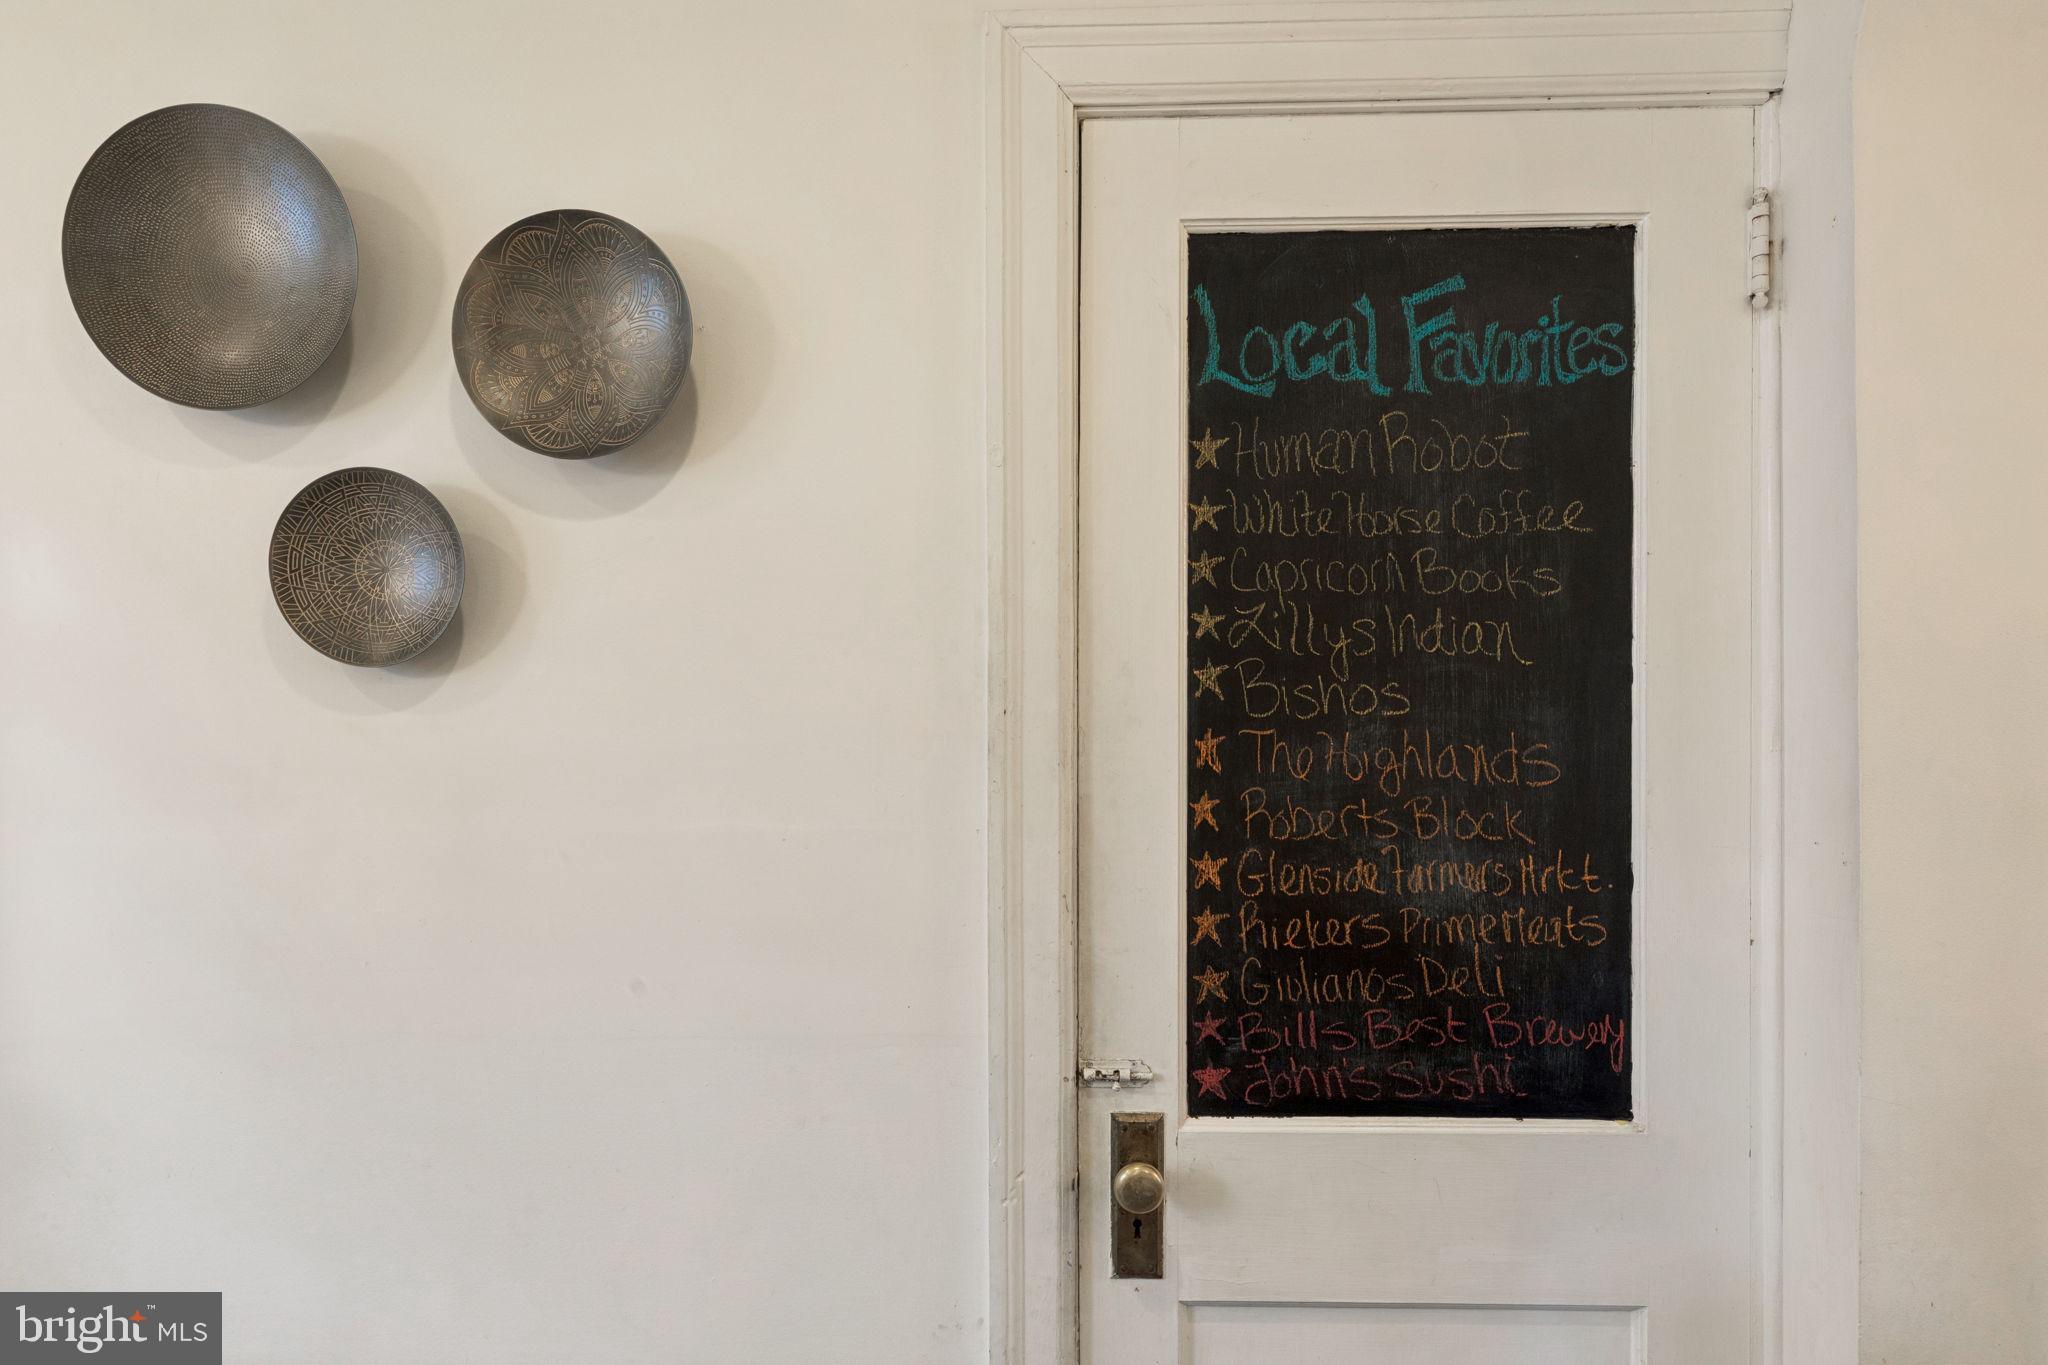 Local Favorites
Human Robot
White Horse Coffee
Capricorn Books
Lillys Indian
Bishos
The Highlands
Roberts Block
Glenside Farmers Mrkt.
Riekers Prime Meats
Giulianos Deli
Bills Best Brewery
John's Sushi
bright™ MLS